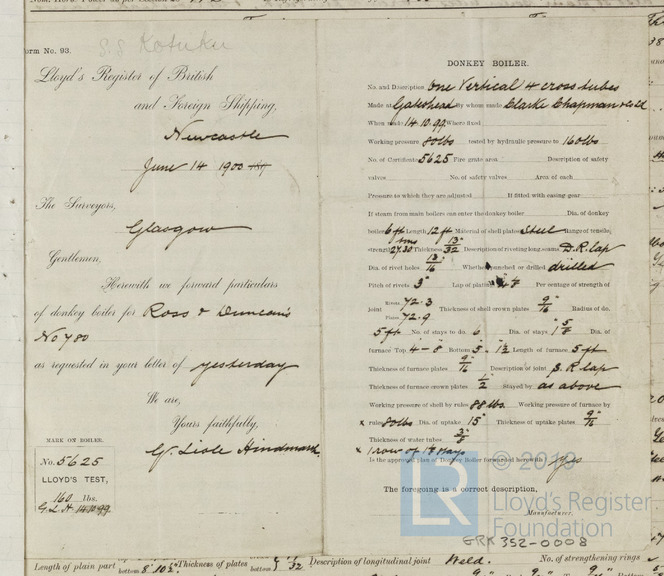 orm No. 93.
S.S Kotuku
Lloyd's Register of British
and Foreign Shipping,
Newcastle
June 14 1900 189
The Surveyors,
Glasgow
Gentlemen,
Herewith we forward particulars
of donkey boiler for Ross & Duncan's
No 780
as requested in your letter of yesterday
We are,
Yours faithfully,
G. Lisle Hindmarsh
MARK ON BOILER.
No. 5625
LLOYD'S TEST,
160 lbs.
G.L.H 14.10.99
DONKEY BOILER.
No. and Description One Vertical 4 cross tubes
Made at Gateshead By whom made Clarke Chapman & Co Ld
When made 14.10.99 Where fixed
Working pressure 80 lbs tested by hydraulic pressure to 160 lbs
No. of Certificate 5625 Fire grate area Description of safety
valves No. of safety valves Area of each
Pressure to which they are adjusted If fitted with easing gear
If steam from main boilers can enter the donkey boiler Dia. of donkey
boiler 6 ft Length 12 ft Material of shell plates Steel Range of tensile
strength 27.30 tons Thickness 13/32 Description of riveting long. seams D.R. lap
Dia. of rivet holes 13/16 Whether punched or drilled drilled
Pitch of rivets 3" Lap of plating Per centage of strength
joint Rivets 72.3 Plates 72.9 Thickness of shell crown plates 9/16" Radius of do.
5 ft No. of stays to do. 6 Dia. of stays 1 5/8" Dia. of
furnace Top 4-8 Bottom 5-1½ Length of furnace 5 ft
Thickness of furnace plates 9/16" Description of joint S.R lap
Thickness of furnace crown plates ½" Stayed by as above
Working pressure of shell by rules 88 lbs. Working pressure of furnace by
x rules 80 lbs Dia. of uptake 15" Thickness of uptake plates 9/16"
Thickness of water tubes 3/8"
x 1 row of 1⅜ stays
Is the approved plan of Donkey Boiler forwarded herewith yes
The foregoing is a correct description,
Manufacturer.
© 2019
LR
Lloyd's Register
Foundation
GRK 352-0008
Length of plain part bottom 8' 10½" Thickness of plates bottom /32 Description of longitudinal joint Weld. No. of strengthening rings